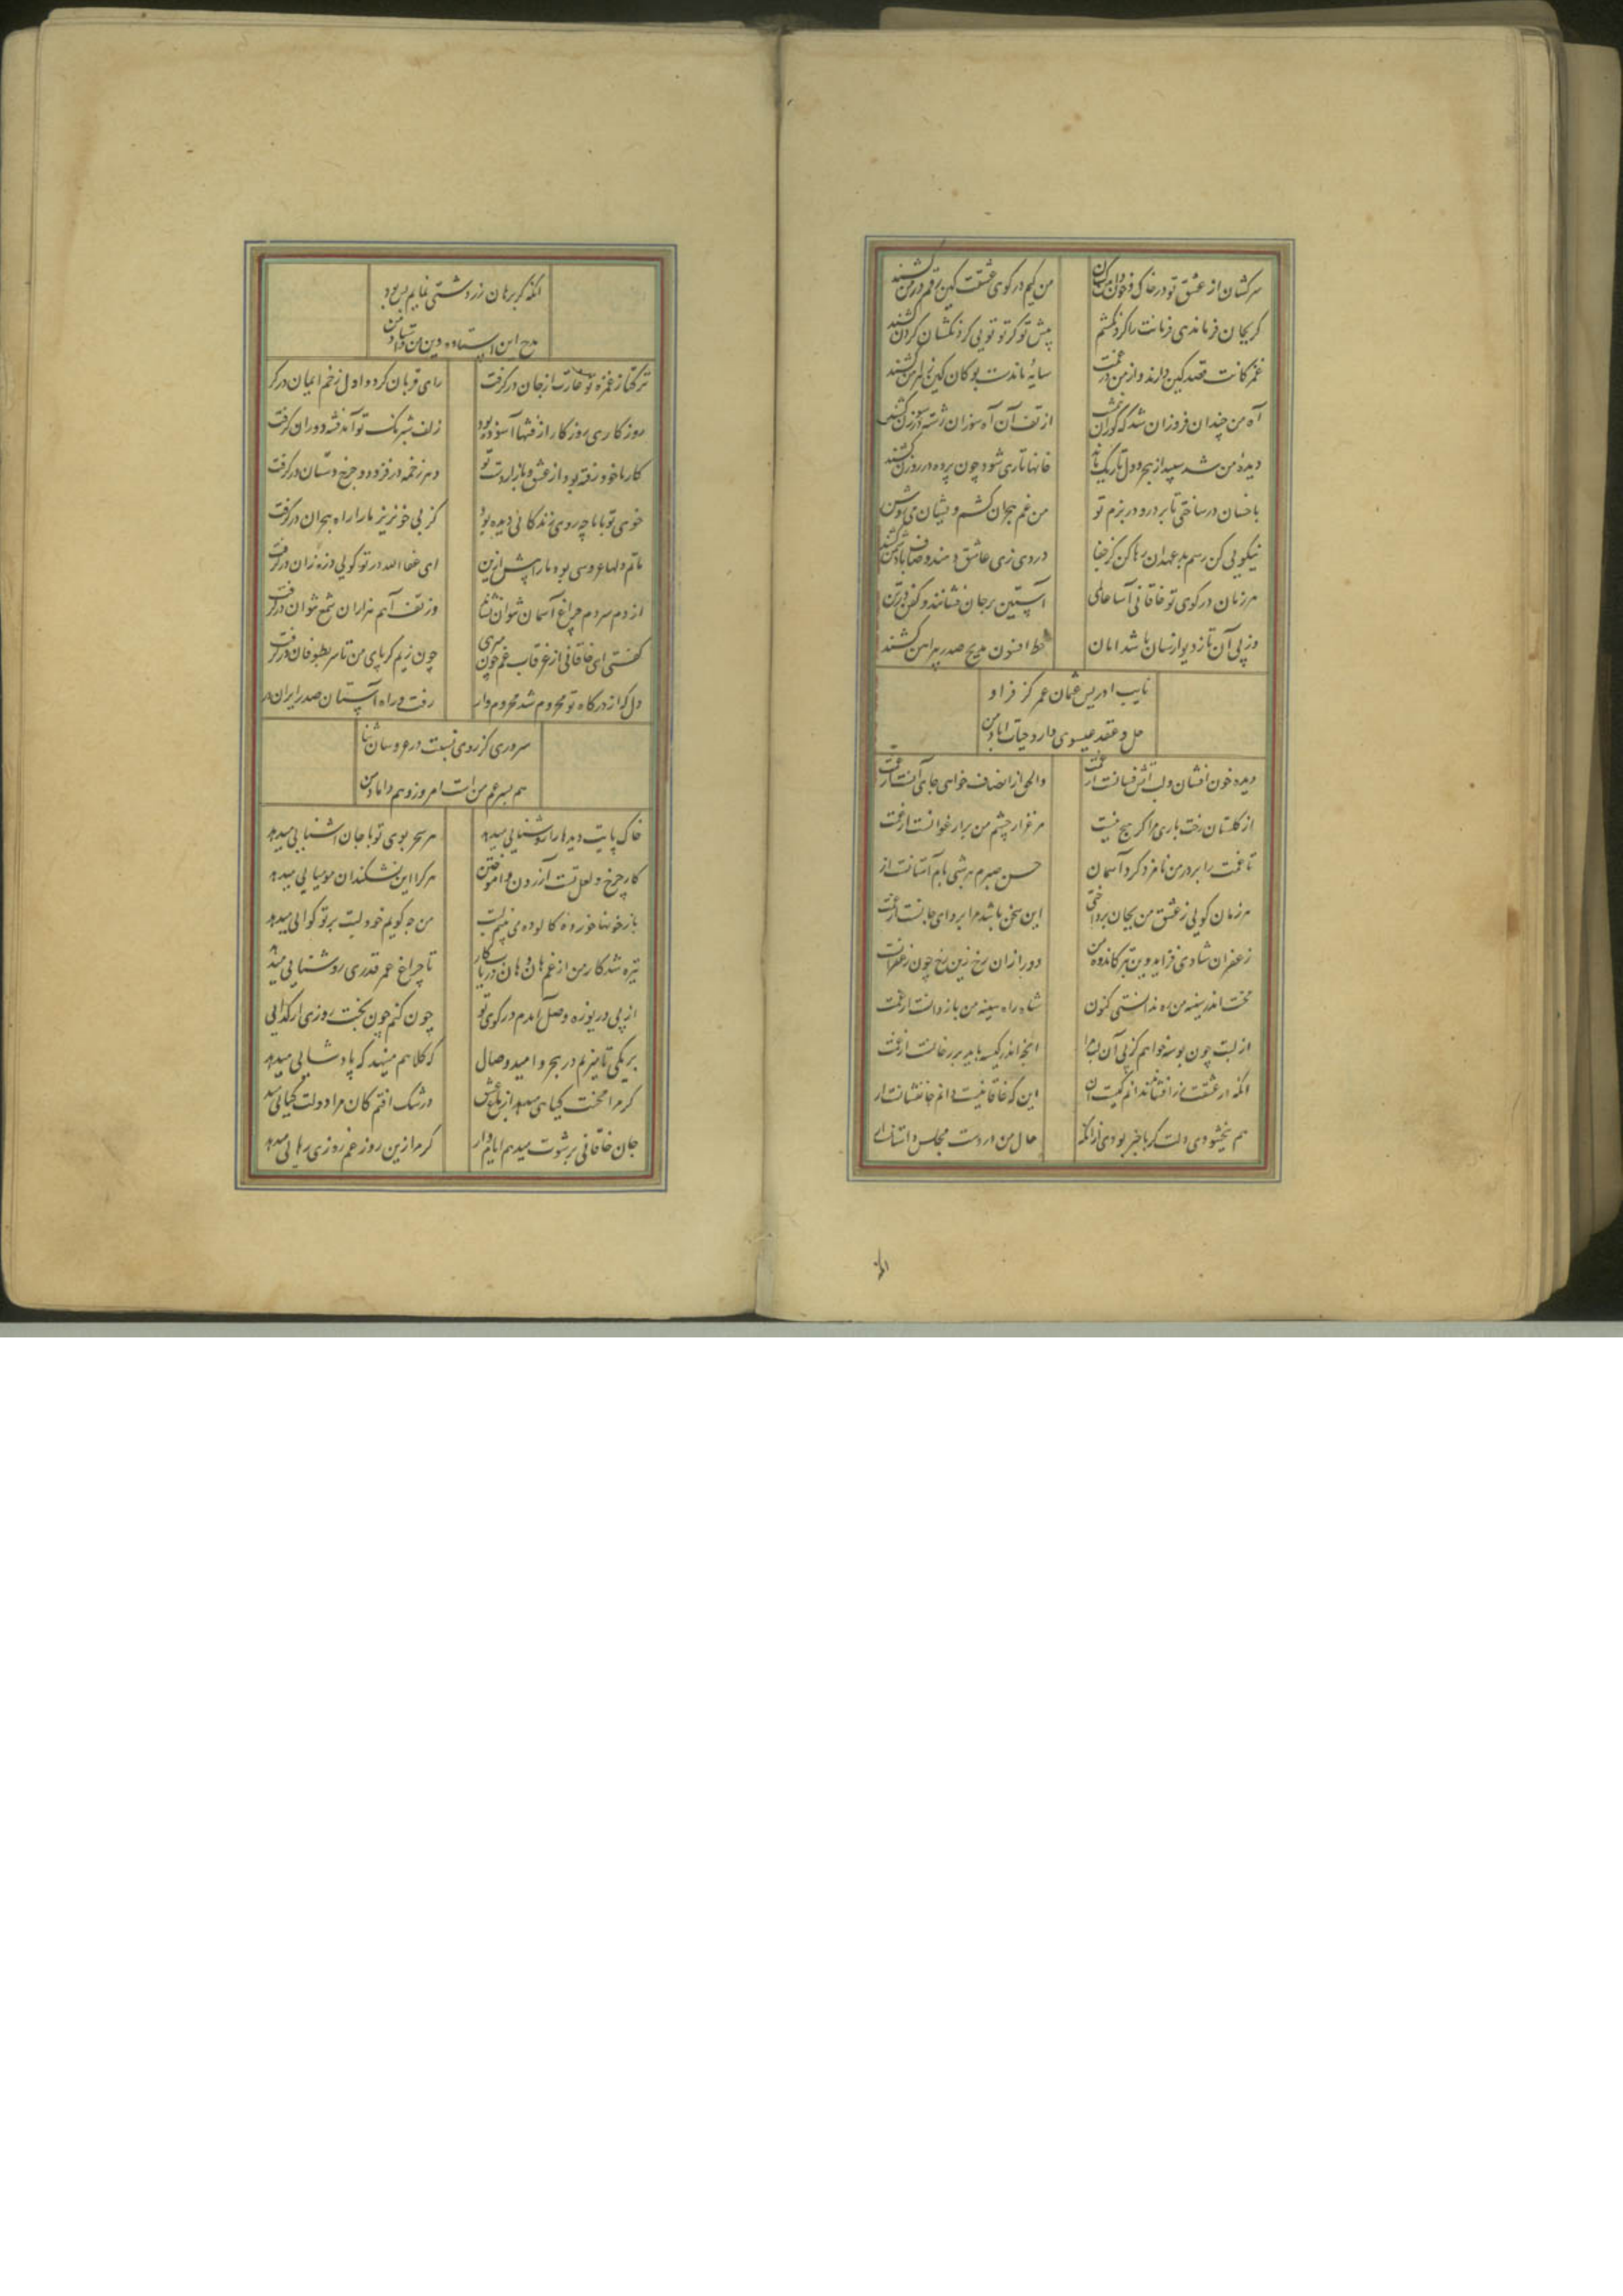 سرکشان از عشق تو در خاک و خون دامن کشان
من کیم در کوی عشقت کین رقم در من کشند
گر بجان فرمان دهی فرمانت را گردن کشم
پیش تو کز تو تویی گردنکشان گردن کشند
غمزگانت قصد کین دارند و از من در غمت
سایهٔ ماندست بو کان کین ز من کشند
آه من چندان فروزان شد که کوران
از تف آن آه سوزان رشته در سوزن کشند
دیدهٔ من شد سپید از هجر و دل تاریک ماند
خانها تاری شود چون پرده در روزن کشند
با خسان درساختی تا بر در و در بزم تو
من غم هجران کشم و یشان می روشن
نیکویی کن رسم بدعهدان رها کن کز جفا
درد دی زی عاشق دهند و صاف با دشمن کشند
هر زمان در کوی تو خاقانی آسا عالمی
آستین بر جان فشانند و کفن در تن
وز پی آن تا ز دیو آزسان باشد امان
خط افسون مدیح صدر پیرامن کشند
نایب ادریس عثمان عمر کز فر او
حل و عقد عیسوی دارد حیات آباد من
دیده خون افشان و لب آتش فشانست از غمت
والحق از انصاف خواهی جای آنست از غمت
از گلستان رخت باری مرا گر هیچ نیست
مرغزار چشم من پر ارغوانست از غمت
تا غمت را بر در من نامزد کرد آسمان
حسن صبرم هر شبی بر آستانست از
هر زمان گویی ز عشق من بجان پرداختی
این سخن باشد مرا پروای جانست از غمت
زعفران شادی فزاید وین بتر کاندوه من
دور از آن رخ زین رخ چون زعفرانست
محنت اندر سینه من ره ندانستی کنون
شاه راه سینه من باز دانست از غمت
از لبت چون بوسه خواهم کز پی آن لب مرا
آنچ اندر کیسه باید بر رخانست از غمت
آنکه از عشقت زر افشاند ندانم کیست آن
این که خاقانیست دانم جانفشانست از
هم ببخشودی دلت گر باخبر بودی از آنک
حال من از دست مجلس داستان از
آنکه
آنکه گر برهان زردشتی نمایم بس بود
مدح این استاد و دین من
ترکتاز غمزه تو غارت از جان درگرفت
رای قربان کرد و اول زخم ایمان درگر
روزگاری روزگار از فتنها آسوده بود
زلف شبرنگ تو آمد فتنه دوران گرفت
کار ما خود رفته بود از عشق تو باز از لبت
دهر زخمه درفزود و چرخ دستان درگرفت
خوی تو با ما چه روی زندگانی دیده بود
کز پی خونریز ما را راه هجران درگرفت
ماتم دلها عروسی بود ما را پیش ازین
ای عفا الله در تو گویی ذره زان درگرفت
از دم سردم چراغ آسمان نتوان نشاند
وز تف آهم هزاران شمع نتوان درگرفت
گفتی ای خاقانی از غرقاب غم چون می‌زیی
چون زیم کز پای من تا سر بطوفان درگرفت
دل که از درگاه تو محروم شد محروم وار
رفت و راه آستان صدر ایران در
سروری کز روی نسبت در عروسان ثنا
هم پسر عم من است امروز و هم داماد من
خاک پایت دیدها را روشنایی میدهد
هر سحر بوی تو با جان آشنایی میدهد
کار چرخ و لعل تست آزردن و آموختن
هر کرا این بشکند آن مومیایی میدهد
باز خونها خورده کالوده می‌بینم لبت
من چه گویم خود لبت بر تو گوایی میدهد
تیره شد کار من از غم هان و هان دریاب کار
تا چراغ عمر قدری روشنایی میدهد
از پی دریوزه وصل آمدم در کوی تو
چون کنم چون بخت روزی از گدایی
بر یکی تا میزیم در هجر و امید وصال
که کلاهم مینهد که پادشایی میدهد
گر مرا محنت گیاهی میدهد از باغ عشق
در شک افتم کان مرا دولت گیایی میدهد
جان خاقانی برشوت میدهم ایام را
گر مرا زین روز غم روزی رهایی میدهد